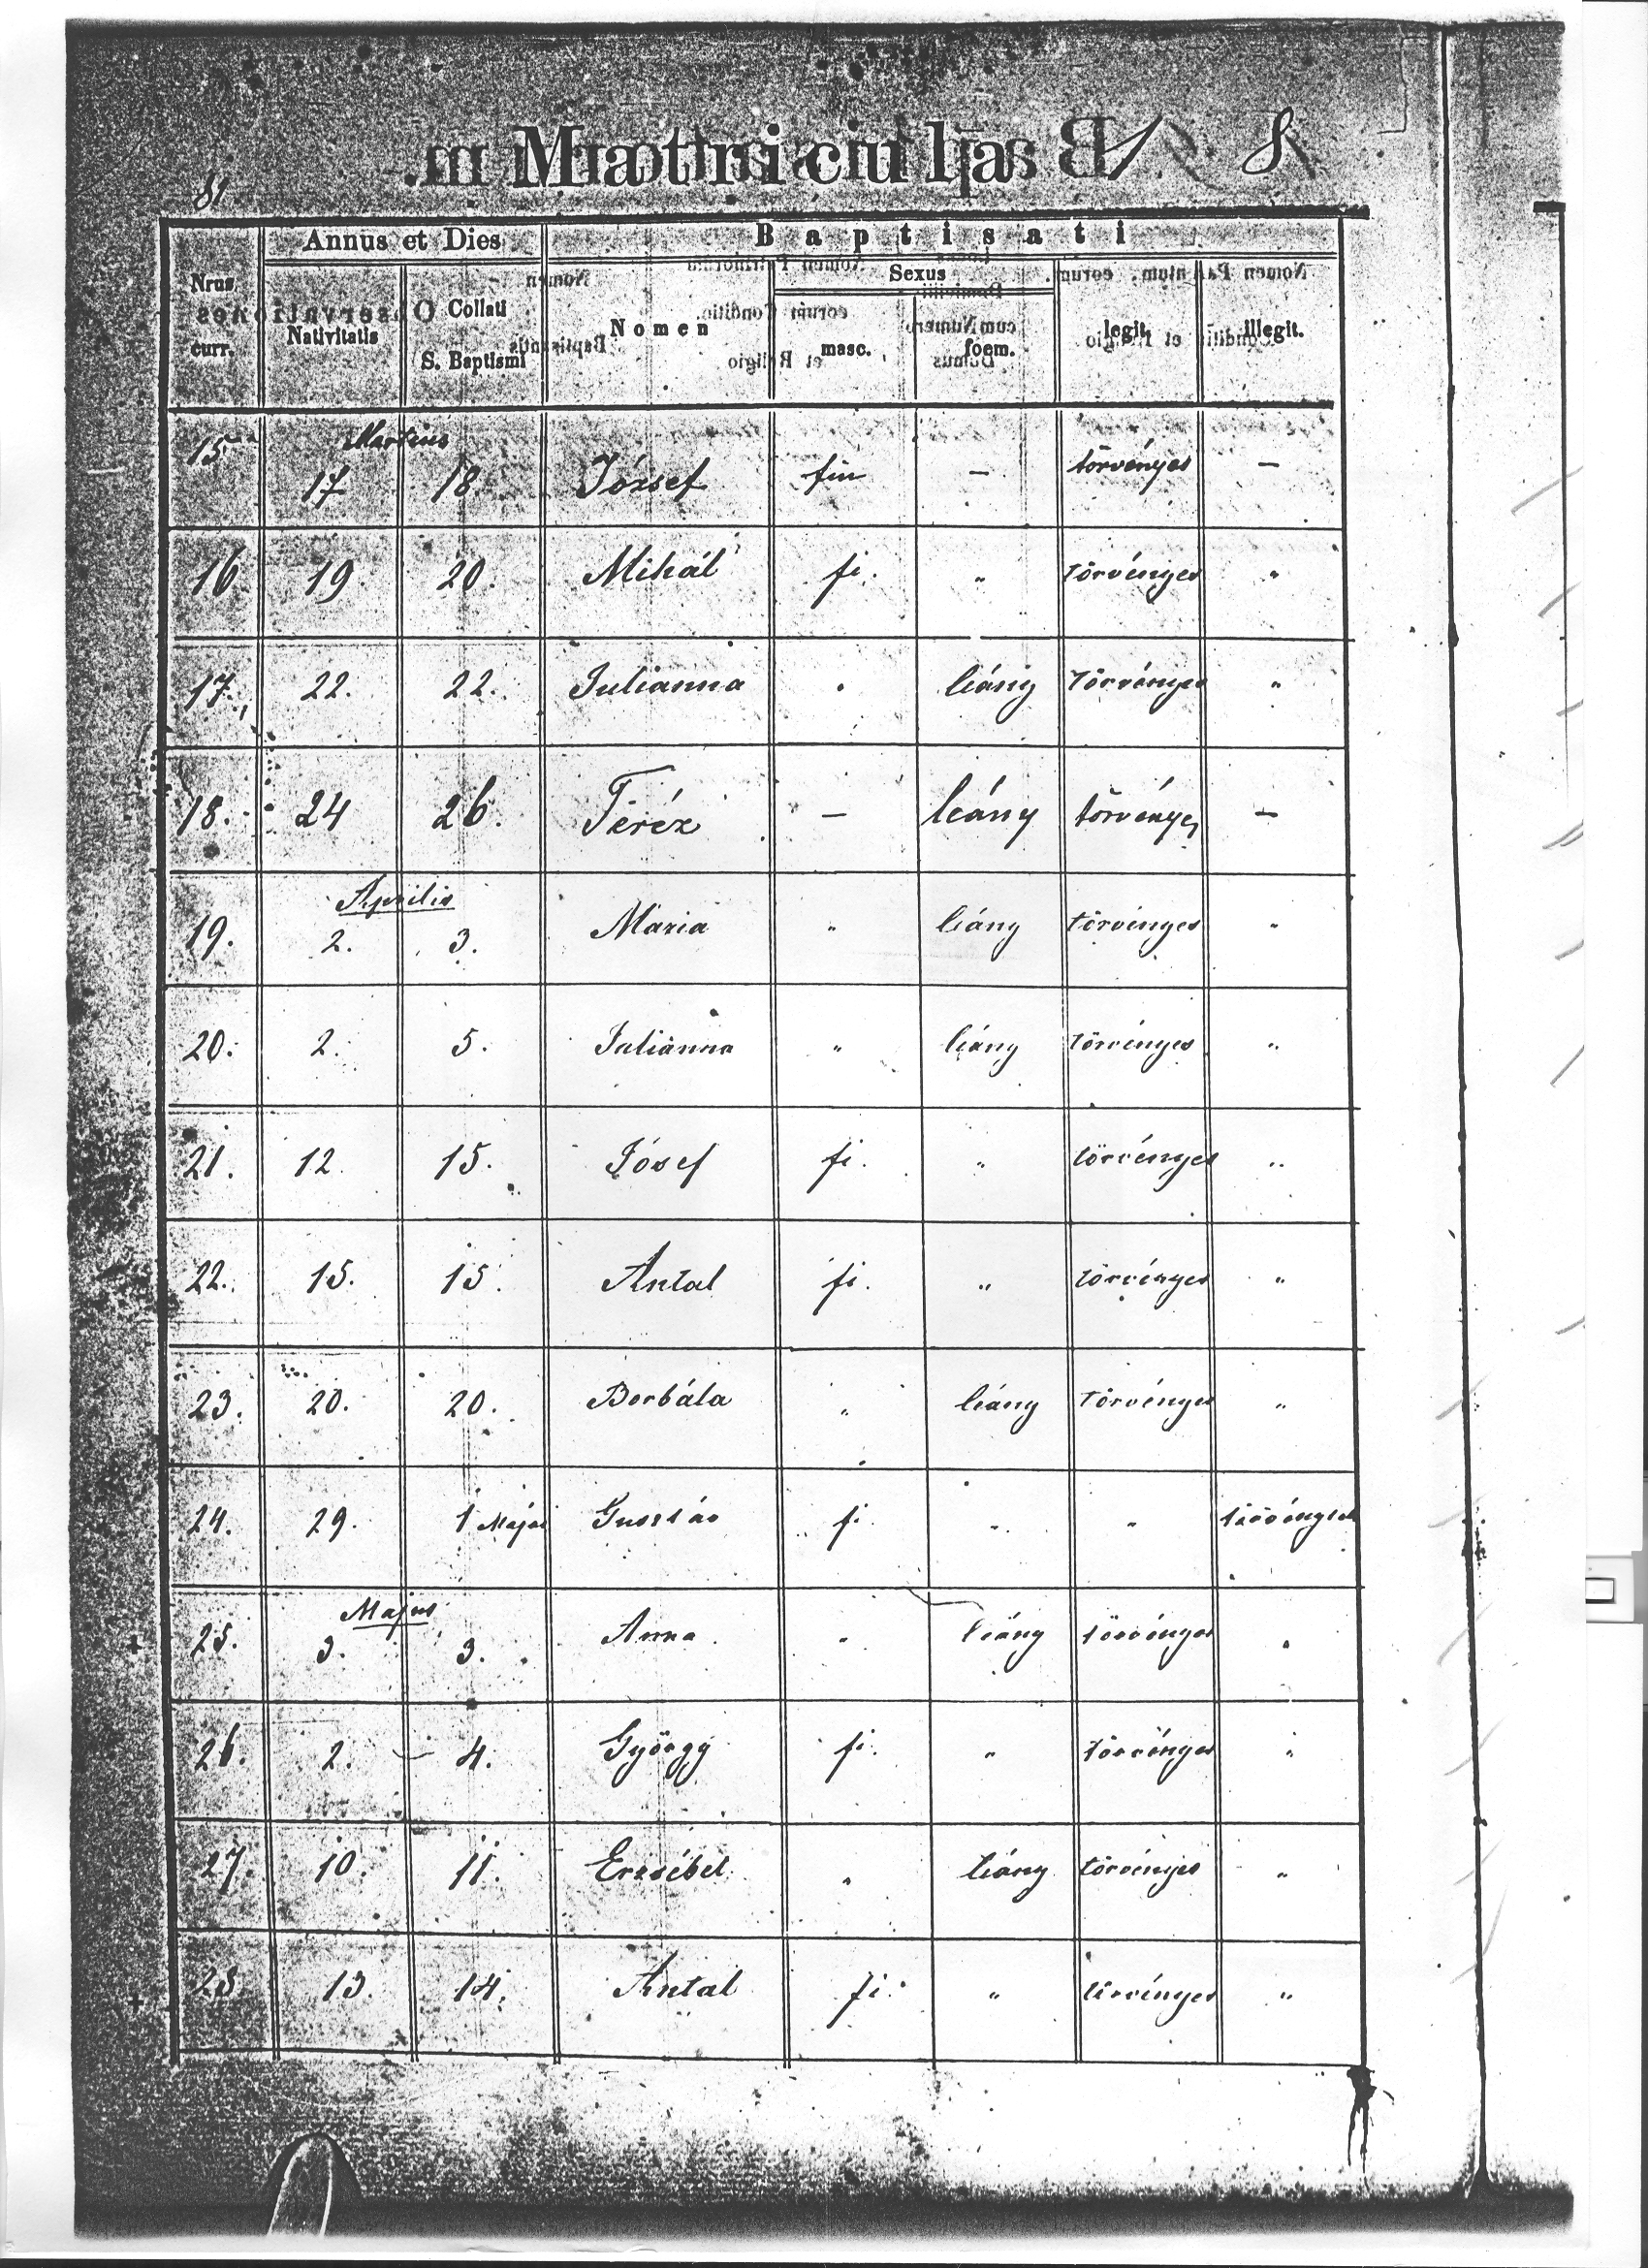 81.
Annus et Dies
Baptisati
Nrus curr.
Nativitatis
Collati S. Baptismi
Nomen
Sexus
masc.
foem.
legit.
illegit.
Martius
15 17 18 József fiu — törvényes —
16 19. 20. Mihál fi. „ törvényes „
17. 22. 22. Julianna „ leány törvényes „
18. 24 26. Teréz — leány törvényes —
Aprilis
19. 2. 3. Maria „ leány törvényes „
20. 2. 5. Julianna „ leány törvényes „
21. 12. 15. Jósef fi. „ törvényes „
22. 15. 15. Antal fi. „ törvényes „
23. 20. 20. Borbála „ leány törvényes „
24. 29. 1 fi. „ „
Majus
25. 3. 3. Anna „ leány törvényes „
26. 2. — 4. György fi. „ törvényes „
27. 10. 11. Erzsébet „ leány törvényes „
28. 13. 14. Antal fi. „ törvényes „